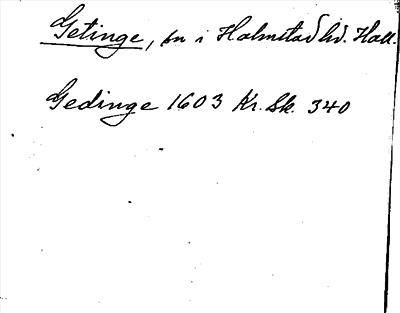 Getinge, sn i Halmstad hd. Hall.
Gedinge 1603 Kr. Sk. 340